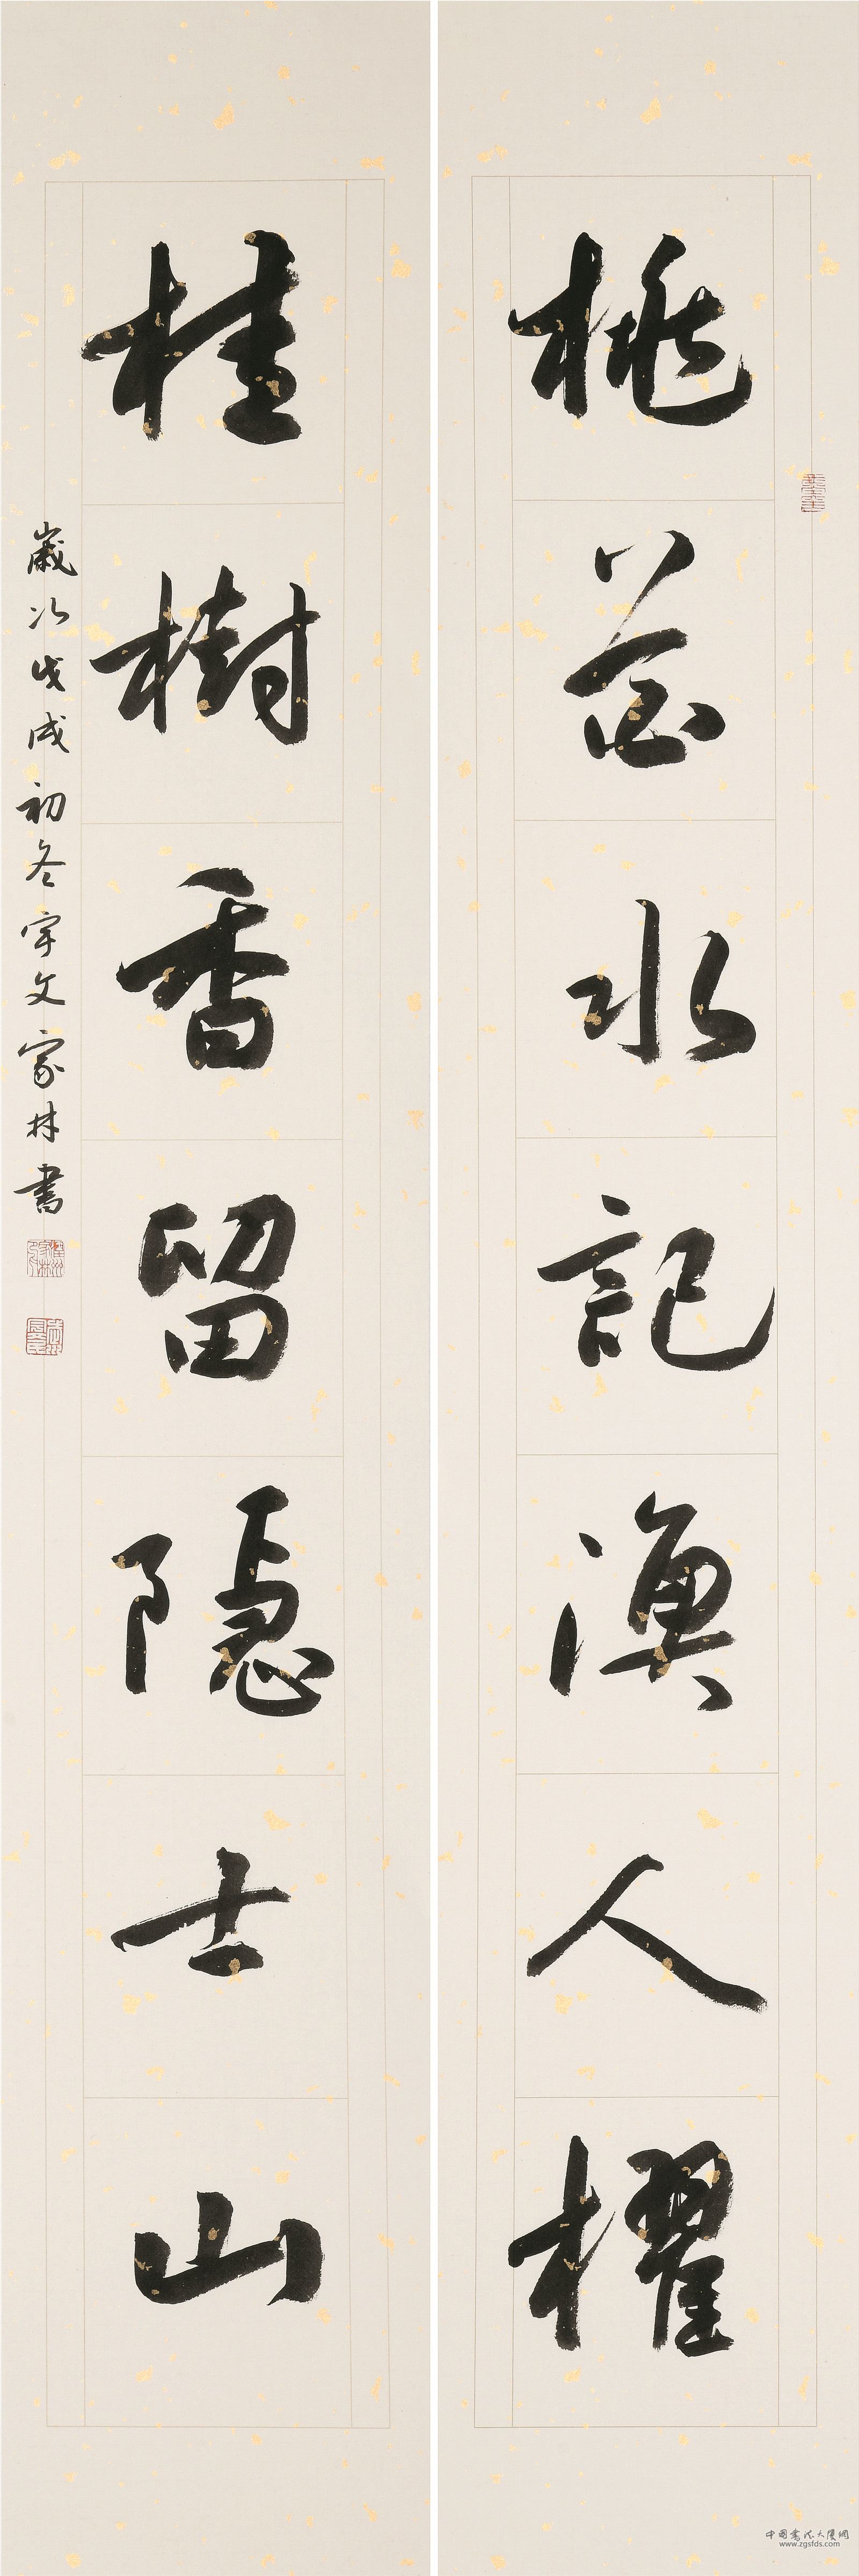 桃花水記漁人櫂
桂樹香留隱士山
歲次戊戌初冬宇文家林書
中国书法大厦网
www.zgsfds.com